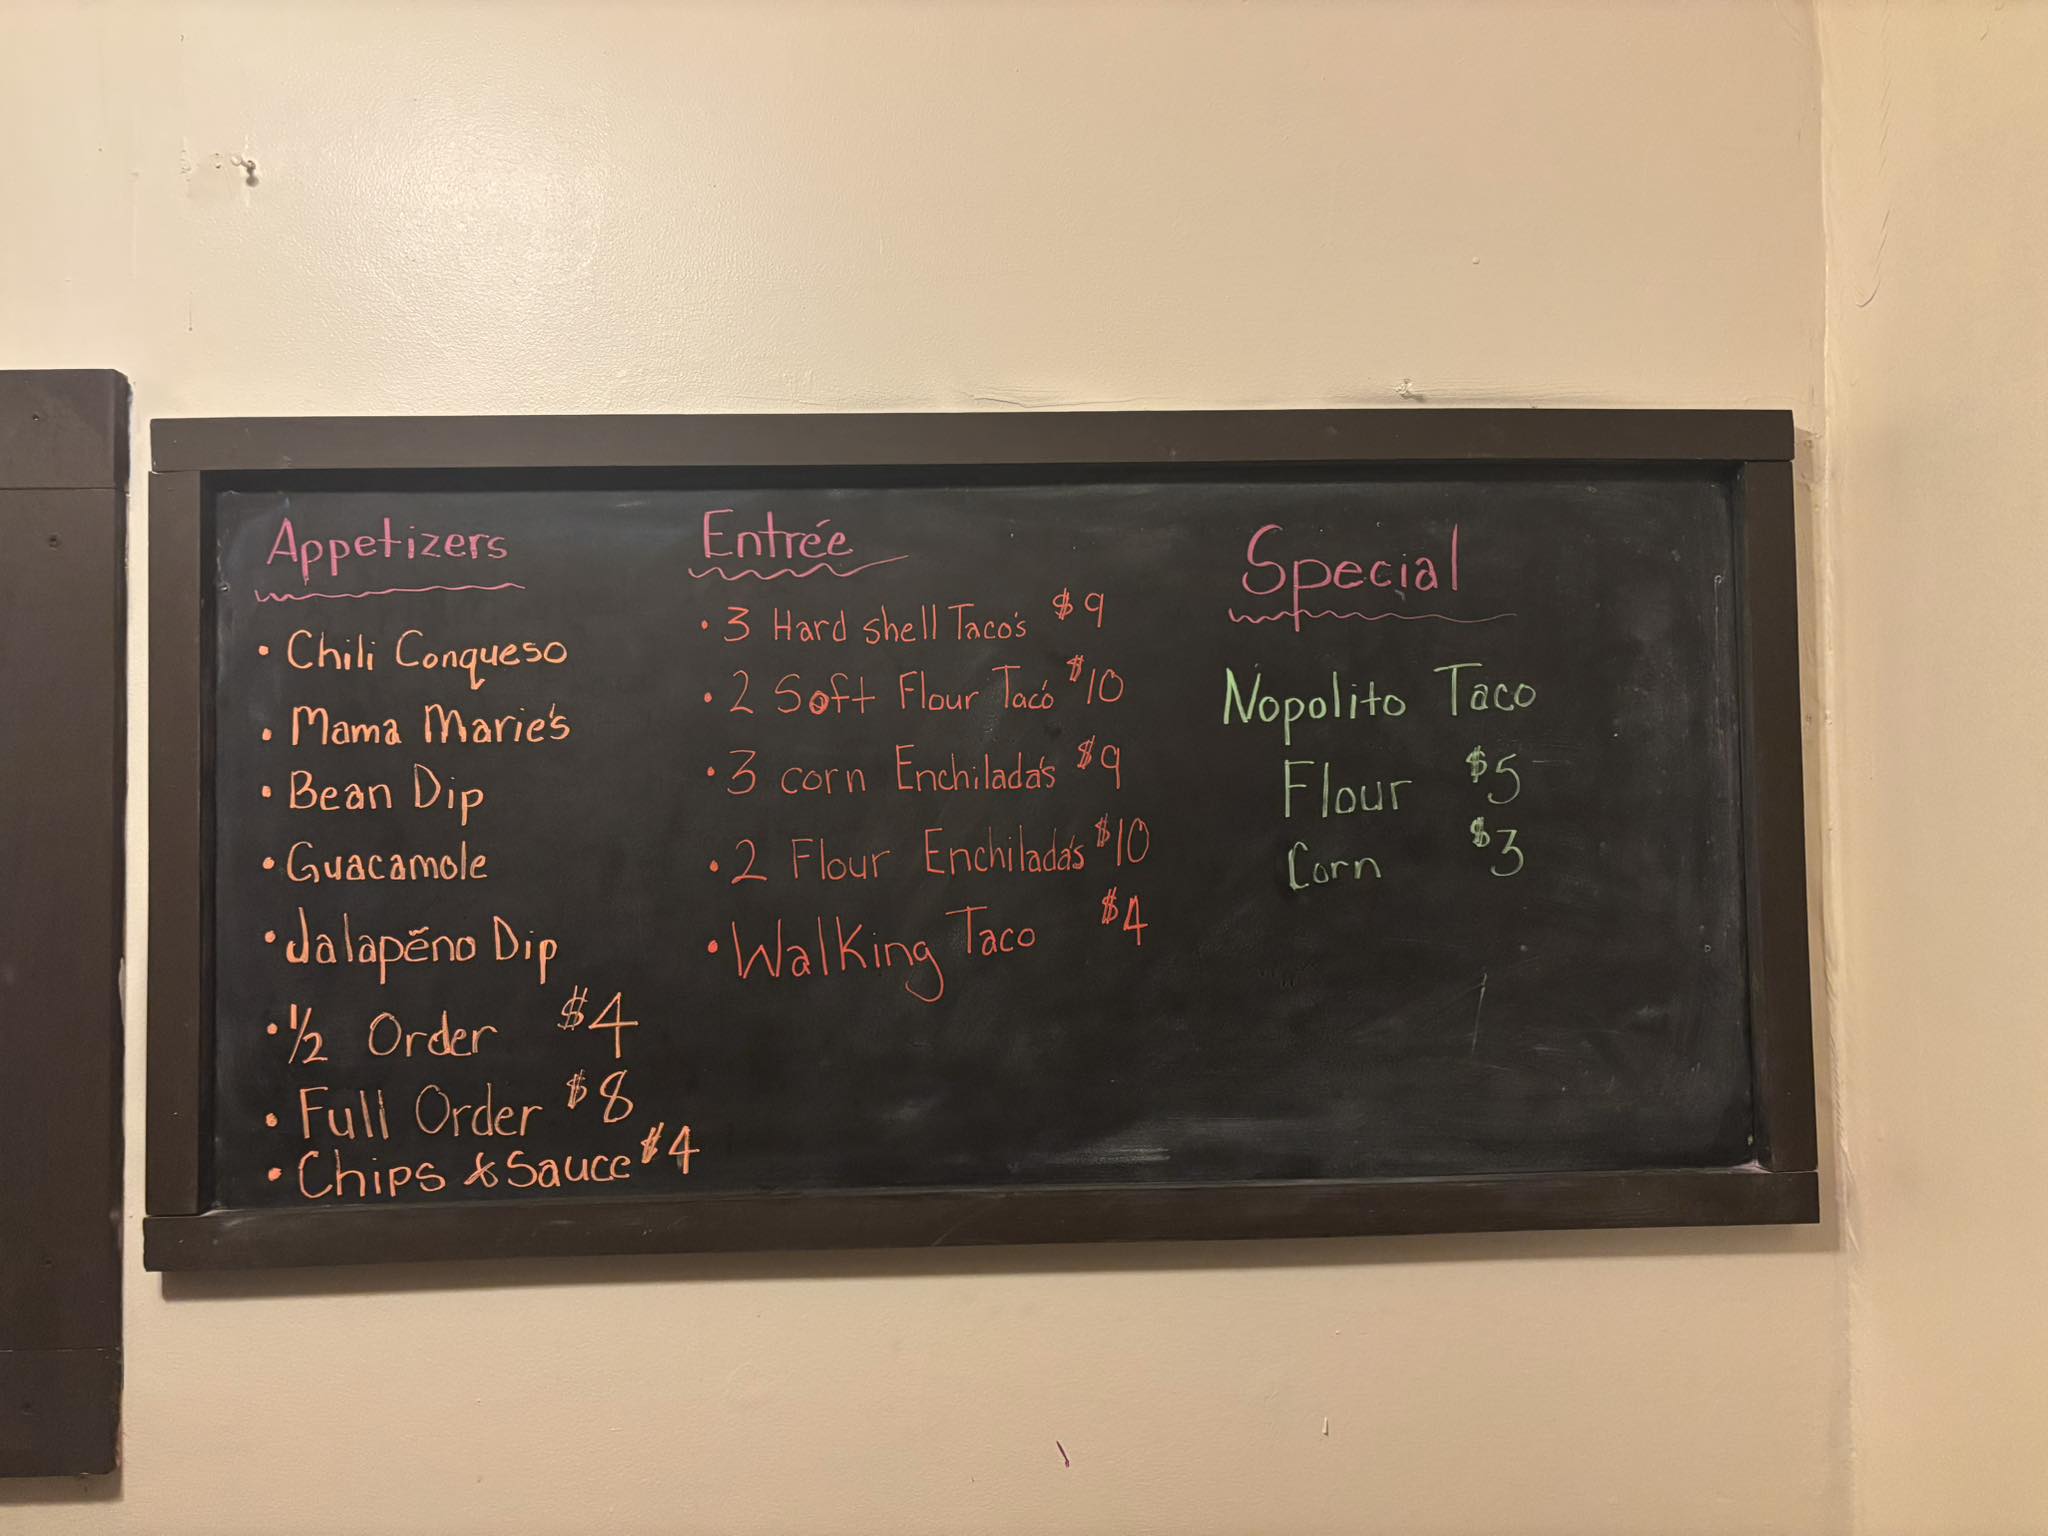 Appetizers
• Chili Conqueso
• Mama Marie's
• Bean Dip
• Guacamole
• Jalapẽno Dip
• 1/2 Order $4
• Full Order $8
• Chips & Sauce $4
Entrée
• 3 Hard shell Taco's $9
• 2 Soft Flour Taco's $10
• 3 corn Enchilada's $9
• 2 Flour Enchilada's $10
• Walking Taco $4
Special
Nopolito Taco
Flour $5
Corn $3